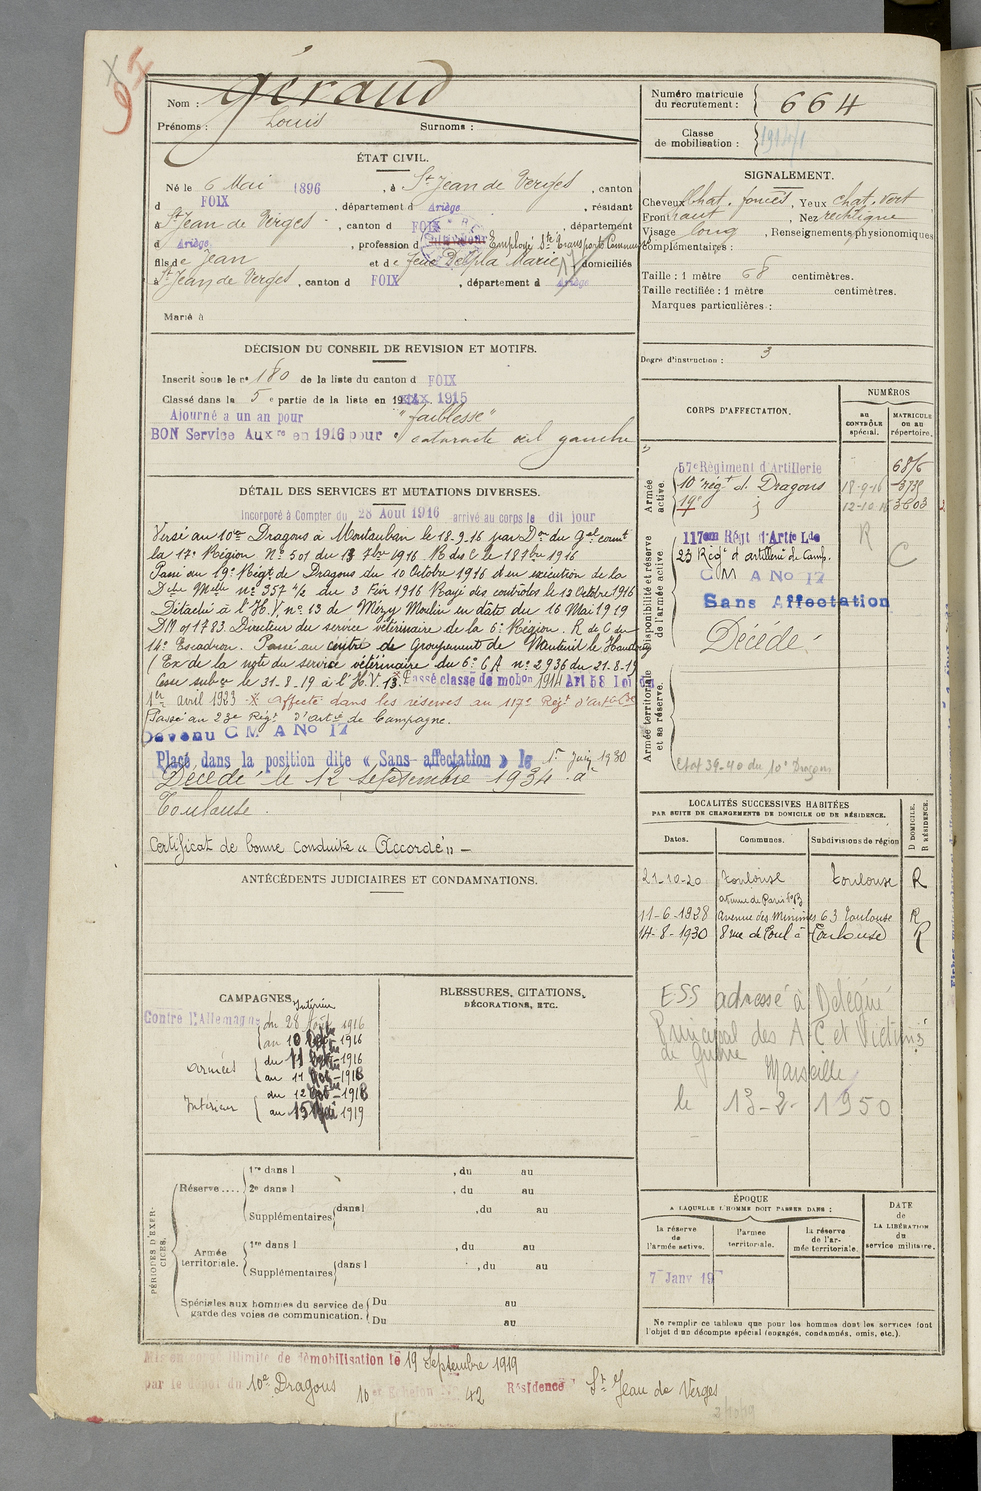 Nom : Géraud
Prénoms : Louis Surnoms :
ÉTAT CIVIL.
Né le 6 Mai 1896, à St Jean de Verges, canton
d FOIX, département d Ariège, résidant
à St Jean de Verges, canton d FOIX, département
d Ariège, profession d Employé Sté Transports Communs
fils de Jean et de feue Delpla Marie domiciliés
à St Jean de Verges, canton d FOIX, département d Ariège
Marié à
DÉCISION DU CONSEIL DE REVISION ET MOTIFS.
Inscrit sous le n° 180 de la liste du canton d FOIX
Classé dans la 5e partie de la liste en 1915
Ajourné a un an pour "faiblesse"
BON Service Auxre en 1916 pour cataracte œil gauche
DÉTAIL DES SERVICES ET MUTATIONS DIVERSES.
Incorporé à Compter du 28 Aout 1916 arrivé au corps le dit jour
Versé au 10me Dragons à Montauban le 18-9-16 par Don du Gal comt
la 17e Région N° 501 du 13 7bre 1916 R des C le 18 7bre 1916
Passé au 19e Régt de Dragons du 10 Octobre 1916 en exécution de la
Dche Mlle n° 357 4/2 du 3 Fév 1916 Rayé des contrôles le 12 Octobre 1916
Détaché à l'H.V. n° 13 de Mézy Moulin en date du 16 Mai 1919
DM of 1783. Directeur du service vétérinaire de la 6e Région. R de C du
14e Escadron. Passé au centre de Groupement de Nanteuil le Haudoin
(Ex de la note du service vétérinaire du 6e CA n° 2936 du 21.8.19
Cesse subce le 31.8.19 à l'H.V. 13. Passé classe de mobon 1914 Art 58 Loi du
1er avril 1923 - Affecté dans les réserves au 117e Régt d'artie Lde
Passé au 23e Régt d'artie de Campagne.
Devenu C M A No 17
Placé dans la position dite « Sans-affectation » le 1er Juin 1930
Décédé le 12 septembre 1934 à
Toulouse.
Certificat de bonne conduite « Accordé » -
ANTÉCÉDENTS JUDICIAIRES ET CONDAMNATIONS.
CAMPAGNES.
Intérieur
Contre l'Allemagne du 28 Août 1916
au 10 Octbre 1916
Armées du 11 Octbre 1916
au 11 Nov 1918
Intérieur du 12 Nov 1918
au 15 Mai 1919
BLESSURES, CITATIONS,
DÉCORATIONS, ETC.
PÉRIODES D'EXERCICES.
Réserve.... 1re dans l , du au
2e dans l , du au
Supplémentaires dans l , du au
Armée territoriale. 1re dans l , du au
Supplémentaires dans l , du au
Spéciales aux hommes du service de garde des voies de communication. Du au
Du au
Numéro matricule du recrutement : 664
Classe de mobilisation : 1914/1
SIGNALEMENT.
Cheveux Chat. foncés, Yeux chat. vert
Front haut, Nez rectiligne
Visage long, Renseignements physionomiques
complémentaires :
Taille : 1 mètre 68 centimètres.
Taille rectifiée : 1 mètre centimètres.
Marques particulières :
Degré d'instruction : 3
CORPS D'AFFECTATION.
NUMÉROS
AU CONTRÔLE spécial.
MATRICULE OU AU répertoire.
Armée active.
57e Régiment d'Artillerie
10e régt de Dragons 18-9-16
19e d 12-10-16 3603
Disponibilité et réserve de l'armée active.
117eme Régt d'Artie Lde R
23 Régt d'artillerie de Camp. C
C M A No 17
Sans Affectation
Décédé
Armée territoriale et sa réserve.
Etat 39-40 du 10e Dragons
LOCALITÉS SUCCESSIVES HABITÉES
PAR SUITE DE CHANGEMENTS DE DOMICILE OU DE RÉSIDENCE.
D DOMICILE. R RÉSIDENCE.
Dates. Communes. Subdivisions de région
21-10-20 Toulouse Toulouse R
avenue de Paris n° 63
11-6-1928 Avenue des Minimes 63 Toulouse R
14-8-1930 8 rue de Toul à Toulouse R
ESS adressé à Délégué
Principal des A C et Victimes
de Guerre
Marseille
le 13-2-1950
ÉPOQUE
A LAQUELLE L'HOMME DOIT PASSER DANS :
la réserve de l'armée active.
l'armée territoriale.
la réserve de l'armée territoriale.
DATE de LA LIBÉRATION du service militaire.
7 Janv 19
Ne remplir ce tableau que pour les hommes dont les services font
l'objet d'un décompte spécial (engagés, condamnés, omis, etc.).
Mis en congé illimité de démobilisation le 19 Septembre 1919
par le dépôt du 10e Dragons 10 et Echelon N° 42 Résidence St Jean de Verges